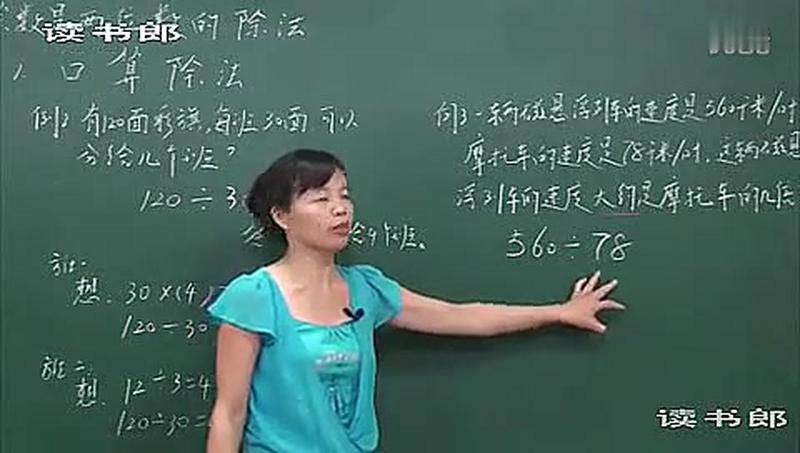 读书郎
数是两位数的除法
1、口算除法
例2 有120面彩旗,每班30面,可以
分给几个班?
120÷3
给4个班。
方法一
想: 30×(4)
120÷30
方法二
想: 12÷3=4
120÷30=
例3 一辆磁悬浮列车的速度是560千米/时
摩托车的速度是78千米/时,这辆磁悬
浮列车的速度大约是摩托车的几倍
560÷78
读书郎